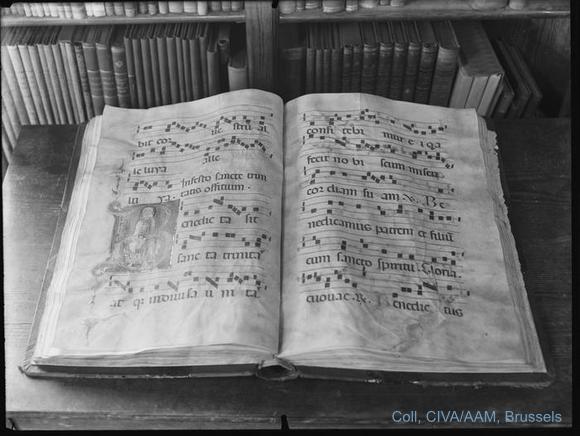 ue. stru al
bit cor
alle
le luya
In festo sancte trini
tatis offitium.
lu ya.
enedic ta sit
sanc ta trinita
at q; indiuisa u ni ta
confi tebi mur e i q a
fecit no bi scum miseri
cor diam su am
nedicamus patrem et filiu
cum sancto spiritu. Gloria.
euouae. enedic tus
Coll, CIVA/AAM, Brussels